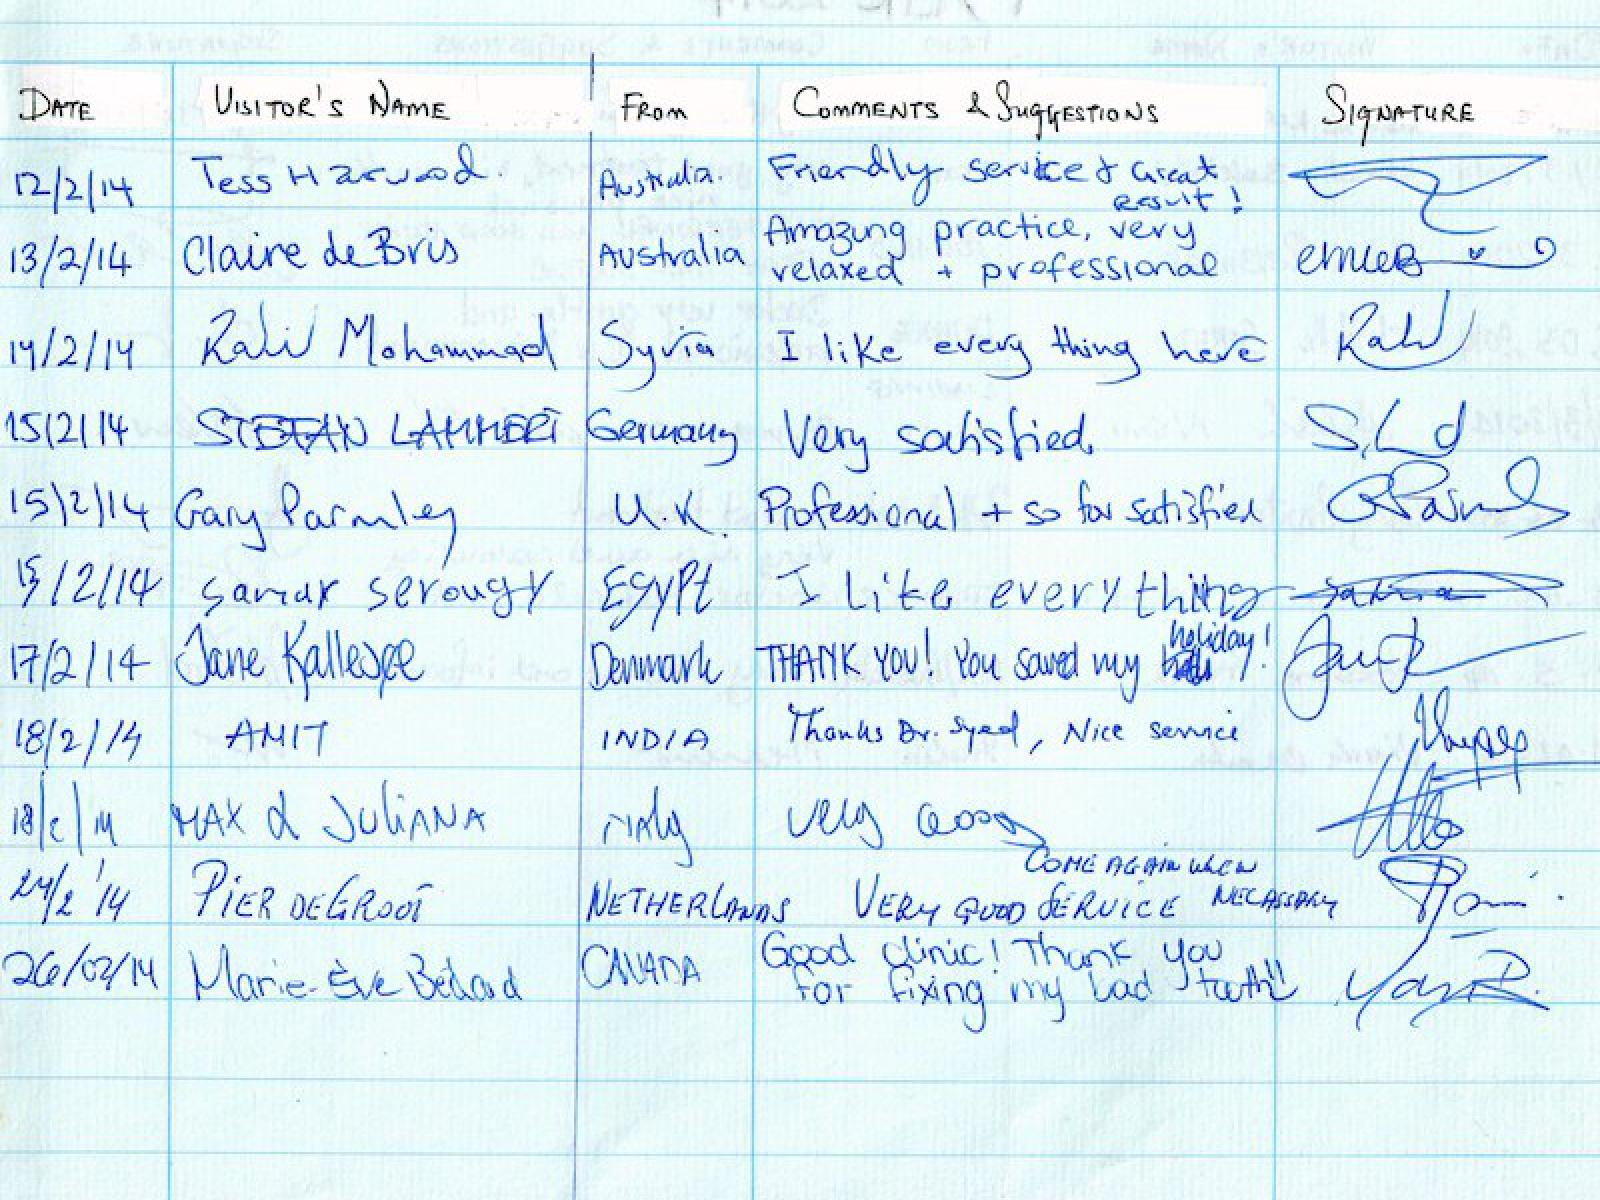 DATE VISITOR'S NAME FROM COMMENTS & SUGGESTIONS SIGNATURE
12/2/14 Tess Harwood. Australia. Friendly service & Great
result!
13/2/14 Claire de Bris Australia Amazing practice, very
relaxed + professional
14/2/14 Mohammad Syria I like every thing here
15/2/14 STEFAN LAMMERT Germany Very satisfied.
15/2/14 Gary Parmley U.K. Professional + so far satisfied
15/2/14 samar serougy EGYPt I Like every thing
holiday!
17/2/14 Jane Denmark THANK YOU! You saved my
18/2/14 AMIT INDIA Thanks Dr. Syed, Nice service
18/2/14 MAX & JULIANA ITALY very good
COME AGAIN WHEN
24/2 '14 PIER DEGROOT NETHERLANDS VERY GOOD SERVICE NECASSARY
26/02/14 Marie-Ève Bédard CANADA Good clinic! Thank you
for fixing my bad tooth!!